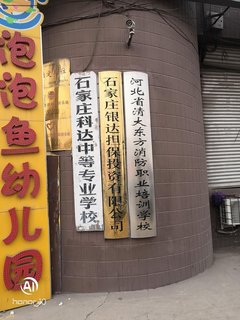 泡泡鱼幼儿园
石家庄科达中等专业学校
石家庄银达担保投资有限公司
河北省清大东方消防职业培训学校
AI
honor